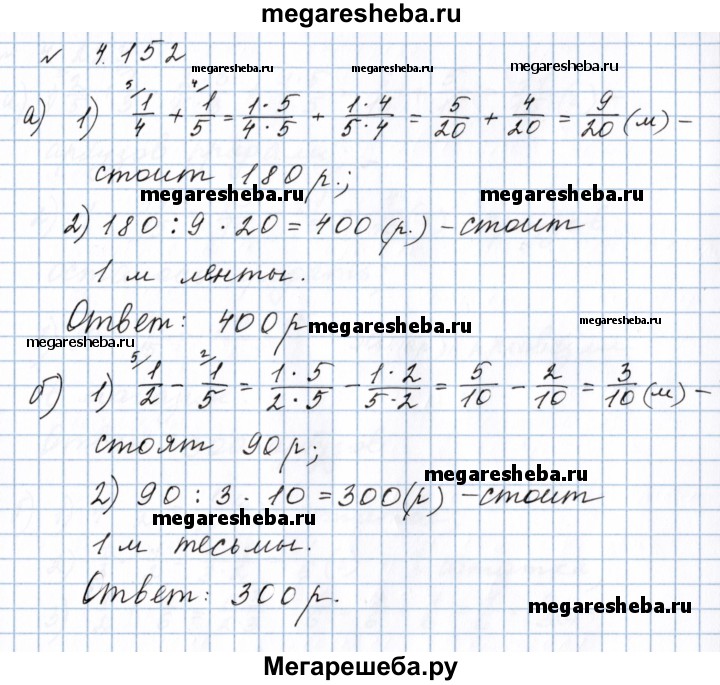 megaresheba.ru
№ 4.152
megaresheba.ru megaresheba.ru megaresheba.ru
а) 1) ⁵/1/4 + ⁴/1/5 = 1·5/4·5 + 1·4/5·4 = 5/20 + 4/20 = 9/20 (м) –
стоит 180 р.;
megaresheba.ru megaresheba.ru
2) 180 : 9 · 20 = 400 (р.) – стоит
1 м ленты.
Ответ: 400 р
megaresheba.ru megaresheba.ru
megaresheba.ru
б) 1) ⁵/1/2 – ²/1/5 = 1·5/2·5 – 1·2/5·2 = 5/10 – 2/10 = 3/10 (м) –
стоят 90 р;
megaresheba.ru
2) 90 : 3 · 10 = 300 (р) – стоит
megaresheba.ru
1 м тесьмы.
Ответ: 300 р.
megaresheba.ru
Мегарешеба.ру